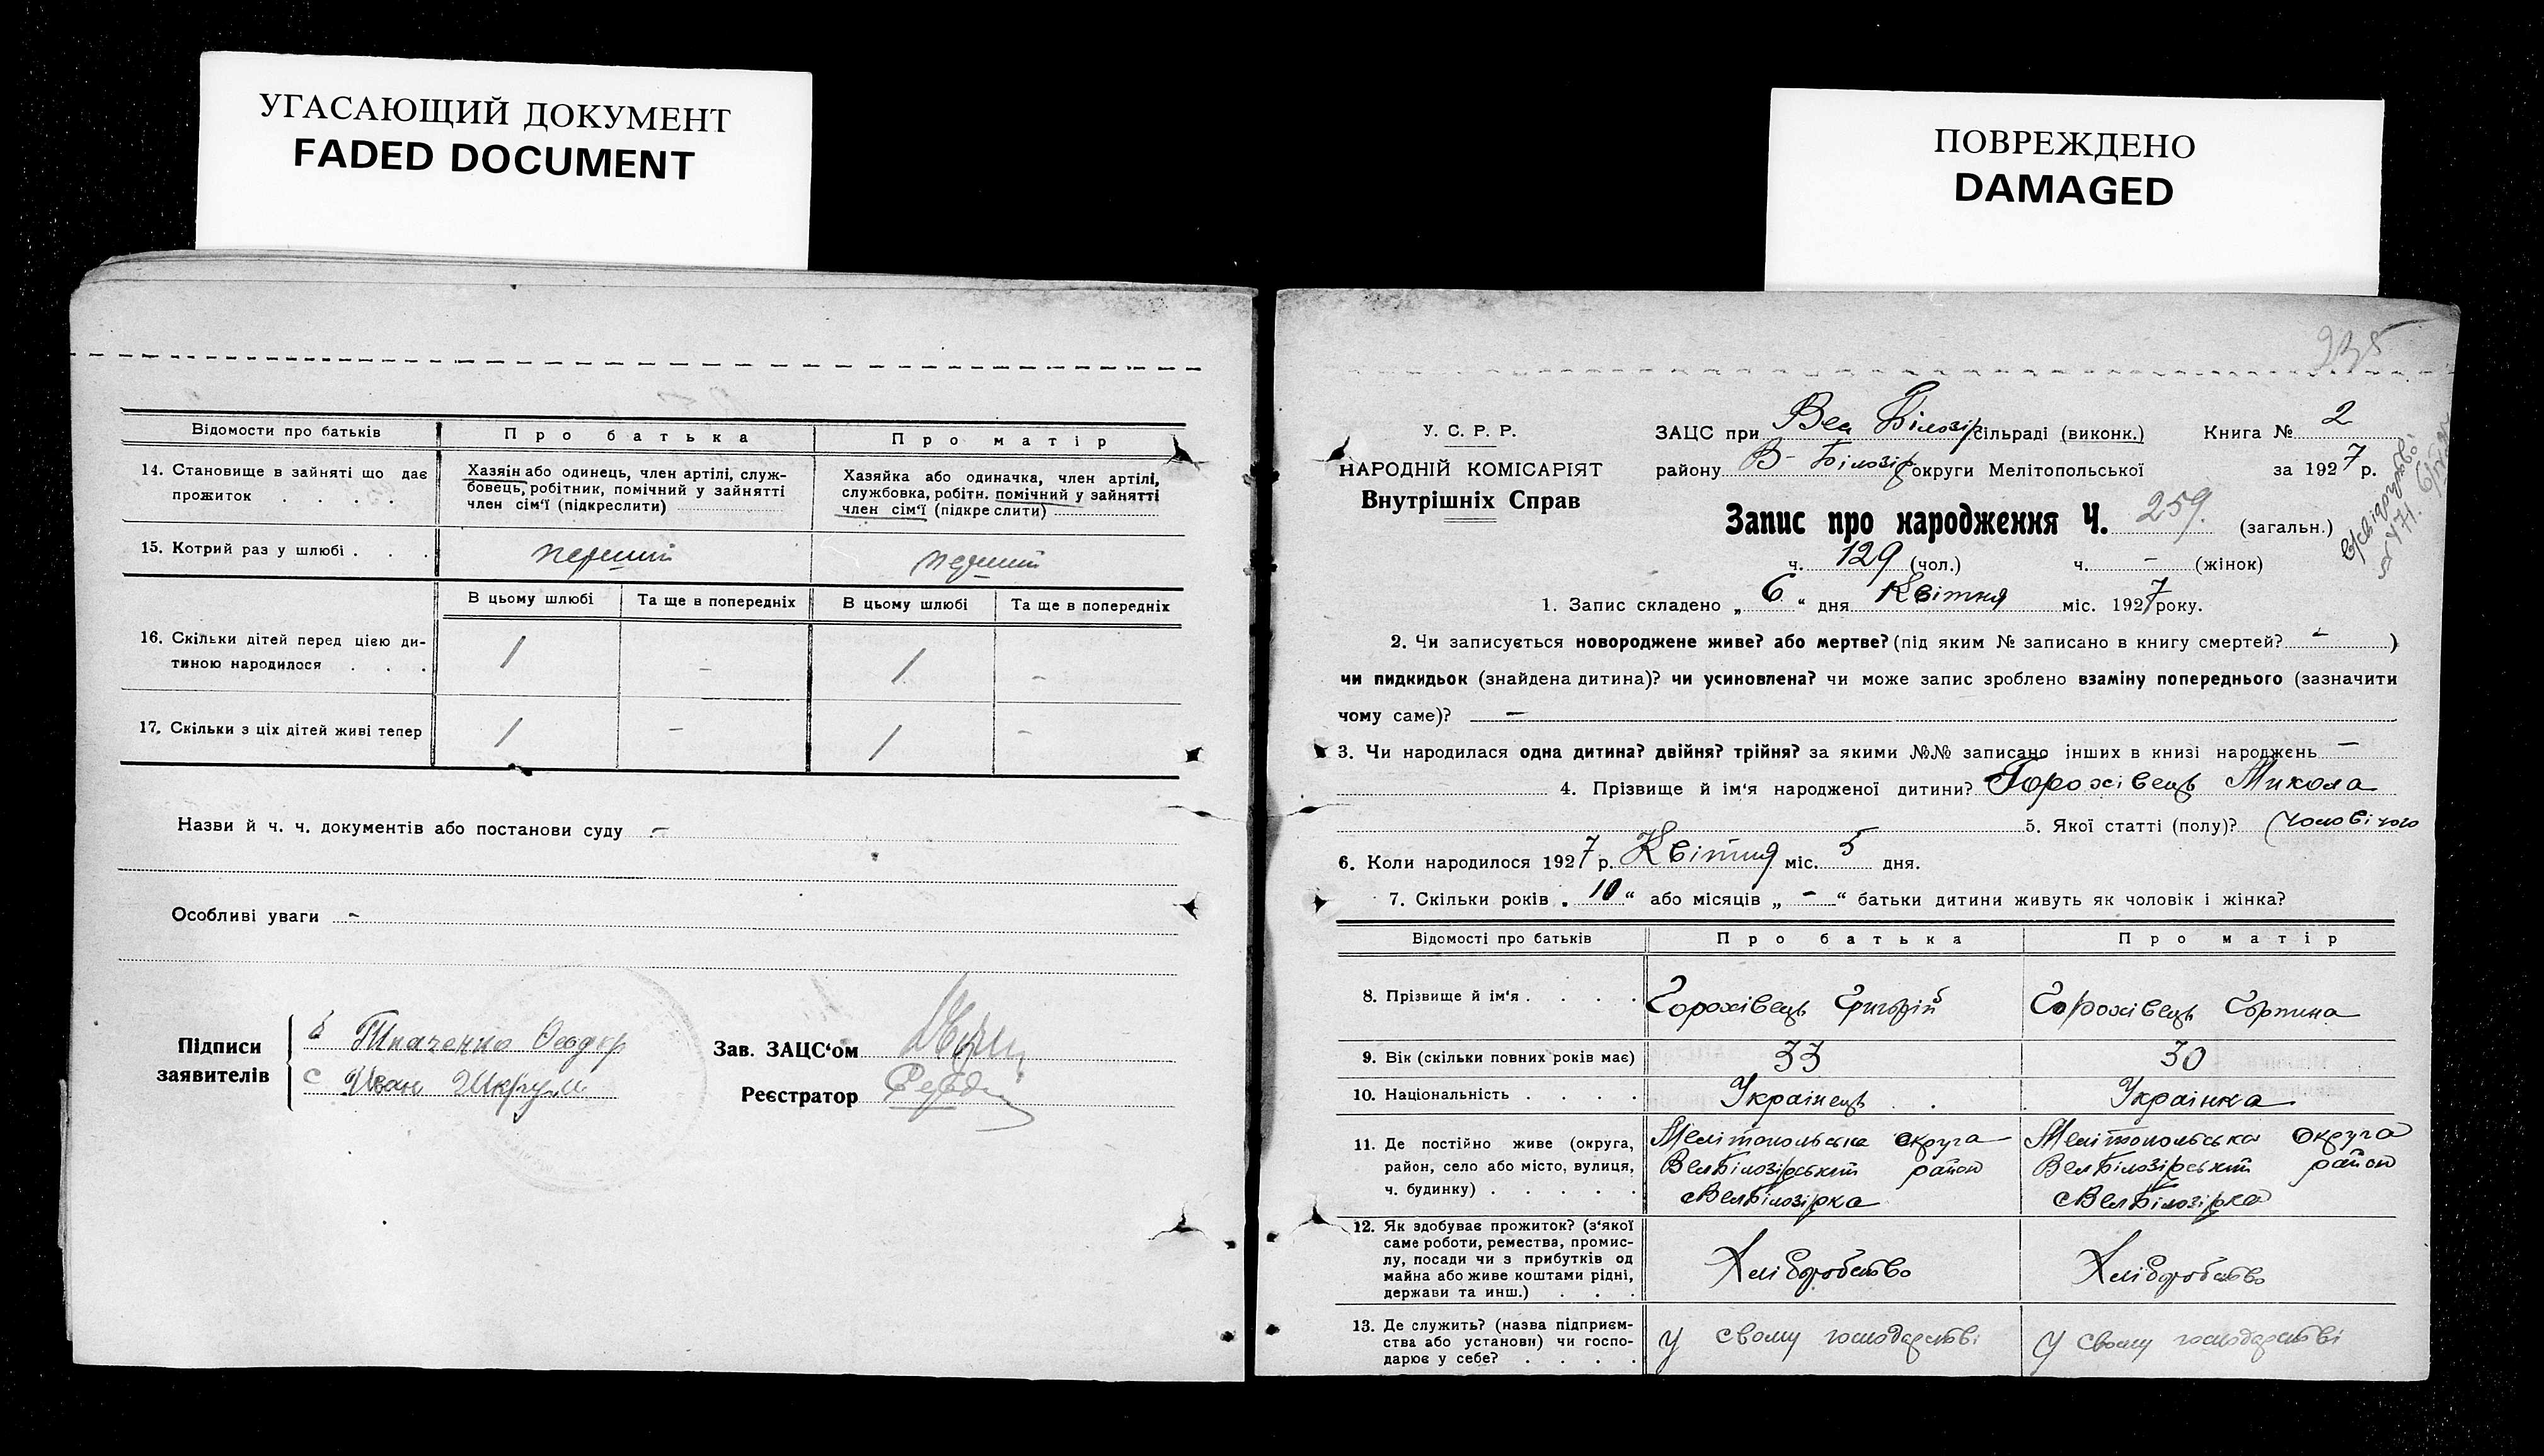 УГАСАЮЩИЙ ДОКУМЕНТ
FADED DOCUMENT
Відомости про батьків
Про батька
Про матір
14. Становище в зайняті що дає
прожиток . . . .
Хазяін або одинець, член артілі, служ-
бовець, робітник, помічний у зайнятті
член сім'ї (підкреслити)
Хазяйка або одиначка, член артілі,
службовка, робітн. помічний у зайнятті
член сім'ї (підкреслити)
15. Котрий раз у шлюбі . . .
перший
перший
В цьому шлюбі
Та ще в попередніх
В цьому шлюбі
Та ще в попередніх
16. Скільки дітей перед цією ди-
тиною народилося . . .
1 - 1 -
17. Скільки з ціх дітей живі тепер
1 - 1 -
Назви й ч. ч. документів або постанови суду -
Особливі уваги -
Підписи
заявителів
Ткаченко Феодор
Иван Шкрум
Зав. ЗАЦС'ом
Реєстратор
ПОВРЕЖДЕНО
DAMAGED
235
У. С. Р. Р.
НАРОДНІЙ КОМІСАРІЯТ
Внутрішніх Справ
ЗАЦС при Вел Білозір сільраді (виконк.) Книга № 2
району В-Білозір округи Мелітопольської за 1927 р.
Запис про народження Ч. 259. (загальн.)
ч. 129 (чол.) ч. - (жінок)
1. Запис складено „ 6 “ дня Квітня міс. 1927 року.
2. Чи записується новороджене живе? або мертве? (під яким № записано в книгу смертей? - )
чи пидкидьок (знайдена дитина)? чи усиновлена? чи може запис зроблено взаміну попереднього (зазначити
чому саме)? -
3. Чи народилася одна дитина? двійня? трійня? за якими №№ записано інших в книзі народжень -
4. Прізвище й ім'я народженої дитини? Горохівець Микола
5. Якої статті (полу)? чоловічого
6. Коли народилося 1927 р. Квітня міс. 5 дня.
7. Скільки років „ 10 “ або місяців „ - “ батьки дитини живуть як чоловік і жінка?
Відомості про батьків
Про батька
Про матір
8. Прізвище й ім'я . . . .
Горохівець Григорій
Горохівець Горпина
9. Вік (скільки повних років має)
33
30
10. Національність . . . .
Українець
Українка
11. Де постійно живе (округа,
район, село або місто, вулиця,
ч. будинку) . . . . .
Мелітопольська округа
ВелБілозірський район
с ВелБілозірка
Мелітопольська округа
ВелБілозірський район
с ВелБілозірка
12. Як здобуває прожиток? (з'якої
саме роботи, ремества, промис-
лу, посади чи з прибутків од
майна або живе коштами рідні,
держави та инш.) . . .
Хліборобство
Хліборобство
13. Де служить? (назва підприєм-
ства або установи) чи госпо-
дарює у себе? . . . .
У свому господарстві
У свому господарстві